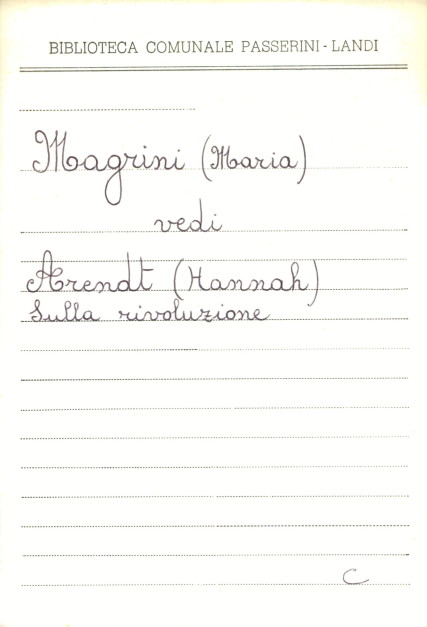 BIBLIOTECA COMUNALE PASSERINI - LANDI
Magrini (Maria)
vedi
Arendt (Hannah)
Sulla rivoluzione
C